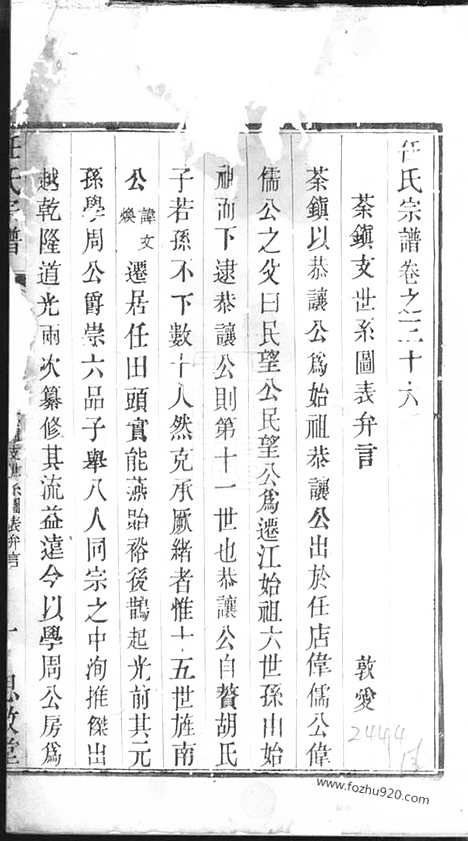 任氏宗譜卷之三十六
茶鎮支世系圖表弁言
敦愛
茶鎮以恭讓公爲始祖恭讓公出於任店偉儒公偉
儒公之父曰民望公民望公爲遷江始祖六世孫由始
祖而下逮恭讓公則第十一世也恭讓公自贅胡氏
子若孫不下數十人然克承厥緒者惟十五世旌南
公諱文煥遷居任田頭實能燕貽裕後鵲起光前其元
孫學周公爵崇六品子舉八人同宗之中洵推傑出
越乾隆道光兩次纂修其流益遠今以學周公房爲
任氏宗譜
支世系圖表弁言
一
思敬堂
2444
www.fozhu920.com